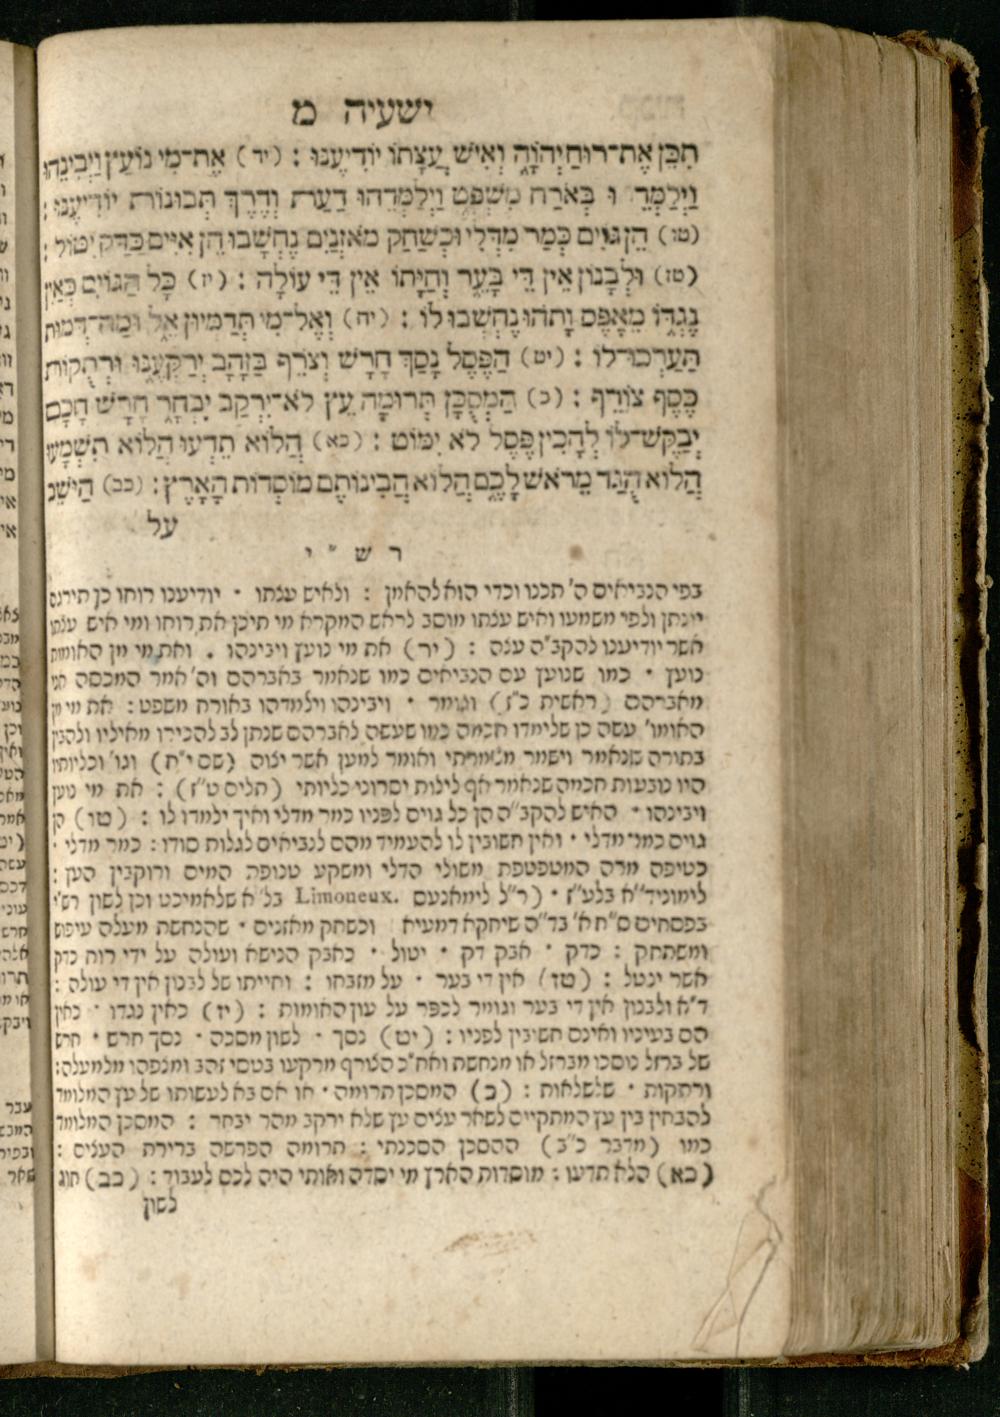 ישעיה מ
תִכֵּן אֶת־רוּחַ יְהוָֹה וְאִישׁ עֲצָתוֹ יוֹדִיעֶנּוּ : (יד) אֶת־מִי נוֹעַץ וַיְבִינֵהוּ
וַיְלַמְּדֵ ו בְּאֹרַח מִשְׁפָּט וַיְלַמְּדֵהוּ דַעַת וְדֶרֶךְ תְּבוּנוֹת יוֹדִיעֶנּוּ :
(טו) הֵן גּוֹיִם כְּמַר מִדְּלִי וּכְשַׁחַק מֹאזְנַיִם נֶחְשָׁבוּ הֵן אִיִּים כַּדַּק יִטּוֹל :
(טז) וּלְבָנוֹן אֵין דֵּי בָּעֵר וְחַיָּתוֹ אֵין דֵּי עוֹלָה : (יז) כָּל הַגּוֹיִם כְּאַיִן
נֶגְדּוֹ מֵאֶפֶס וָתֹהוּ נֶחְשְׁבוּ לוֹ : (יח) וְאֶל־מִי תְּדַמְּיוּן אֵל וּמַה־דְּמוּת
תַּעַרְכוּ־לוֹ : (יט) הַפֶּסֶל נָסַךְ חָרָשׁ וְצֹרֵף בַּזָּהָב יְרַקְּעֶנּוּ וּרְתֻקוֹת
כֶּסֶף צוֹרֵף : (כ) הַמְסֻכָּן תְּרוּמָה עֵץ לֹא־יִרְקַב יִבְחָר חָרָשׁ חָכָם
יְבַקֶּשׁ־לוֹ לְהָכִין פֶּסֶל לֹא יִמּוֹט : (כא) הֲלוֹא תֵדְעוּ הֲלוֹא תִשְׁמָעוּ
הֲלוֹא הֻגַּד מֵרֹאשׁ לָכֶם הֲלוֹא הֲבִינוֹתֶם מוֹסְדוֹת הָאָרֶץ : (כב) הַיּשֵׁב
על
ר ש " י
בפי הנביאים ה' תכנו וכדי הוא להאמן : ולאיש עצתו • יודיענו רוחו כן תירגם
יונתן ולפי משמעו ואיש עצתו מוסב לראש המקרא מי תיכן את רוחו ומי איש עצתו
אשר יודיענו להקב"ה עצה : (יד) את מי נועץ ויבינהו . ואת מי מן האומות
נועץ • כמו שנועץ עם הנביאים כמו שנאמר באברהם וה' אמר המכסה אני
מאברהם (ראשית כ"ז) וגומר • ויבינהו וילמדהו באורח משפט : את מי מן
האומו' עשה כן שלימדו חכמה כמו שעשה לאברהם שנתן לב להכירו מאיליו ולהבין
בתורה שנאמר וישמר משמרתי ואומר למען אשר יצוה (שם י"ח) וגו' וכליותיו
היו נובעות חכמה שנאמר אף לילות יסרוני כליותי (תלים ט"ז) : את מי נועץ
ויבינהו • האיש להקב"ה הן כל גוים לפניו כמר מדלי ואיך ילמדו לו : (טו) הן
גוים כמר מדלי • ואין חשובין לו להעמיד מהם לנביאים לגלות סודו : כמר מדלי •
כטיפה מרה המטפטפת משולי הדלי ומשקע טנופה המים ורוקבין העץ :
לימוניד"א בלע"ז • (ר"ל לימאנעם Limoneux. בל"א שלאמיכט וכן לשון רש"י
בפסחים ס"ח א' בד"ה שיחקא דמעיא וכשחק מאזנים • שהנחשת מעלה עיפוש
ומשתחק : כדק • אבק דק • יטול • כאבק הנישא ועולה על ידי רוח כדק
אשר ינטל : (טז) אין די בער • על מזבחו : וחייתו של לבנון אין די עולה :
ד"א ולבנון אין די בער וגומר לכפר על עון האומות : (יז) כאין נגדו • כאין
הם בעיניו ואינם חשובין לפניו : (יט) נסך • לשון מסכה • נסך חרש • חרש
של ברזל נוסכו מברזל או מנחשת ואח"כ הצורף מרקעו בטסי זהב ומצפהו מלמעלה:
ורתקות • שלשלאות : (כ) המסכן תרומה • או אם בא לעשותו של עץ המלומד
להבחין בין עץ המתקיים לשאר עצים עץ שלא ירקב מהר יבחר : המסכן המלומד
כמו (מדבר כ"ב) ההסכן הסכנתי : תרומה הפרשה ברירת העצים :
(כא) הלא תדעו : מוסדות הארץ מי יסדה ואותי היה לכם לעבוד : (כב) חוג
לשון